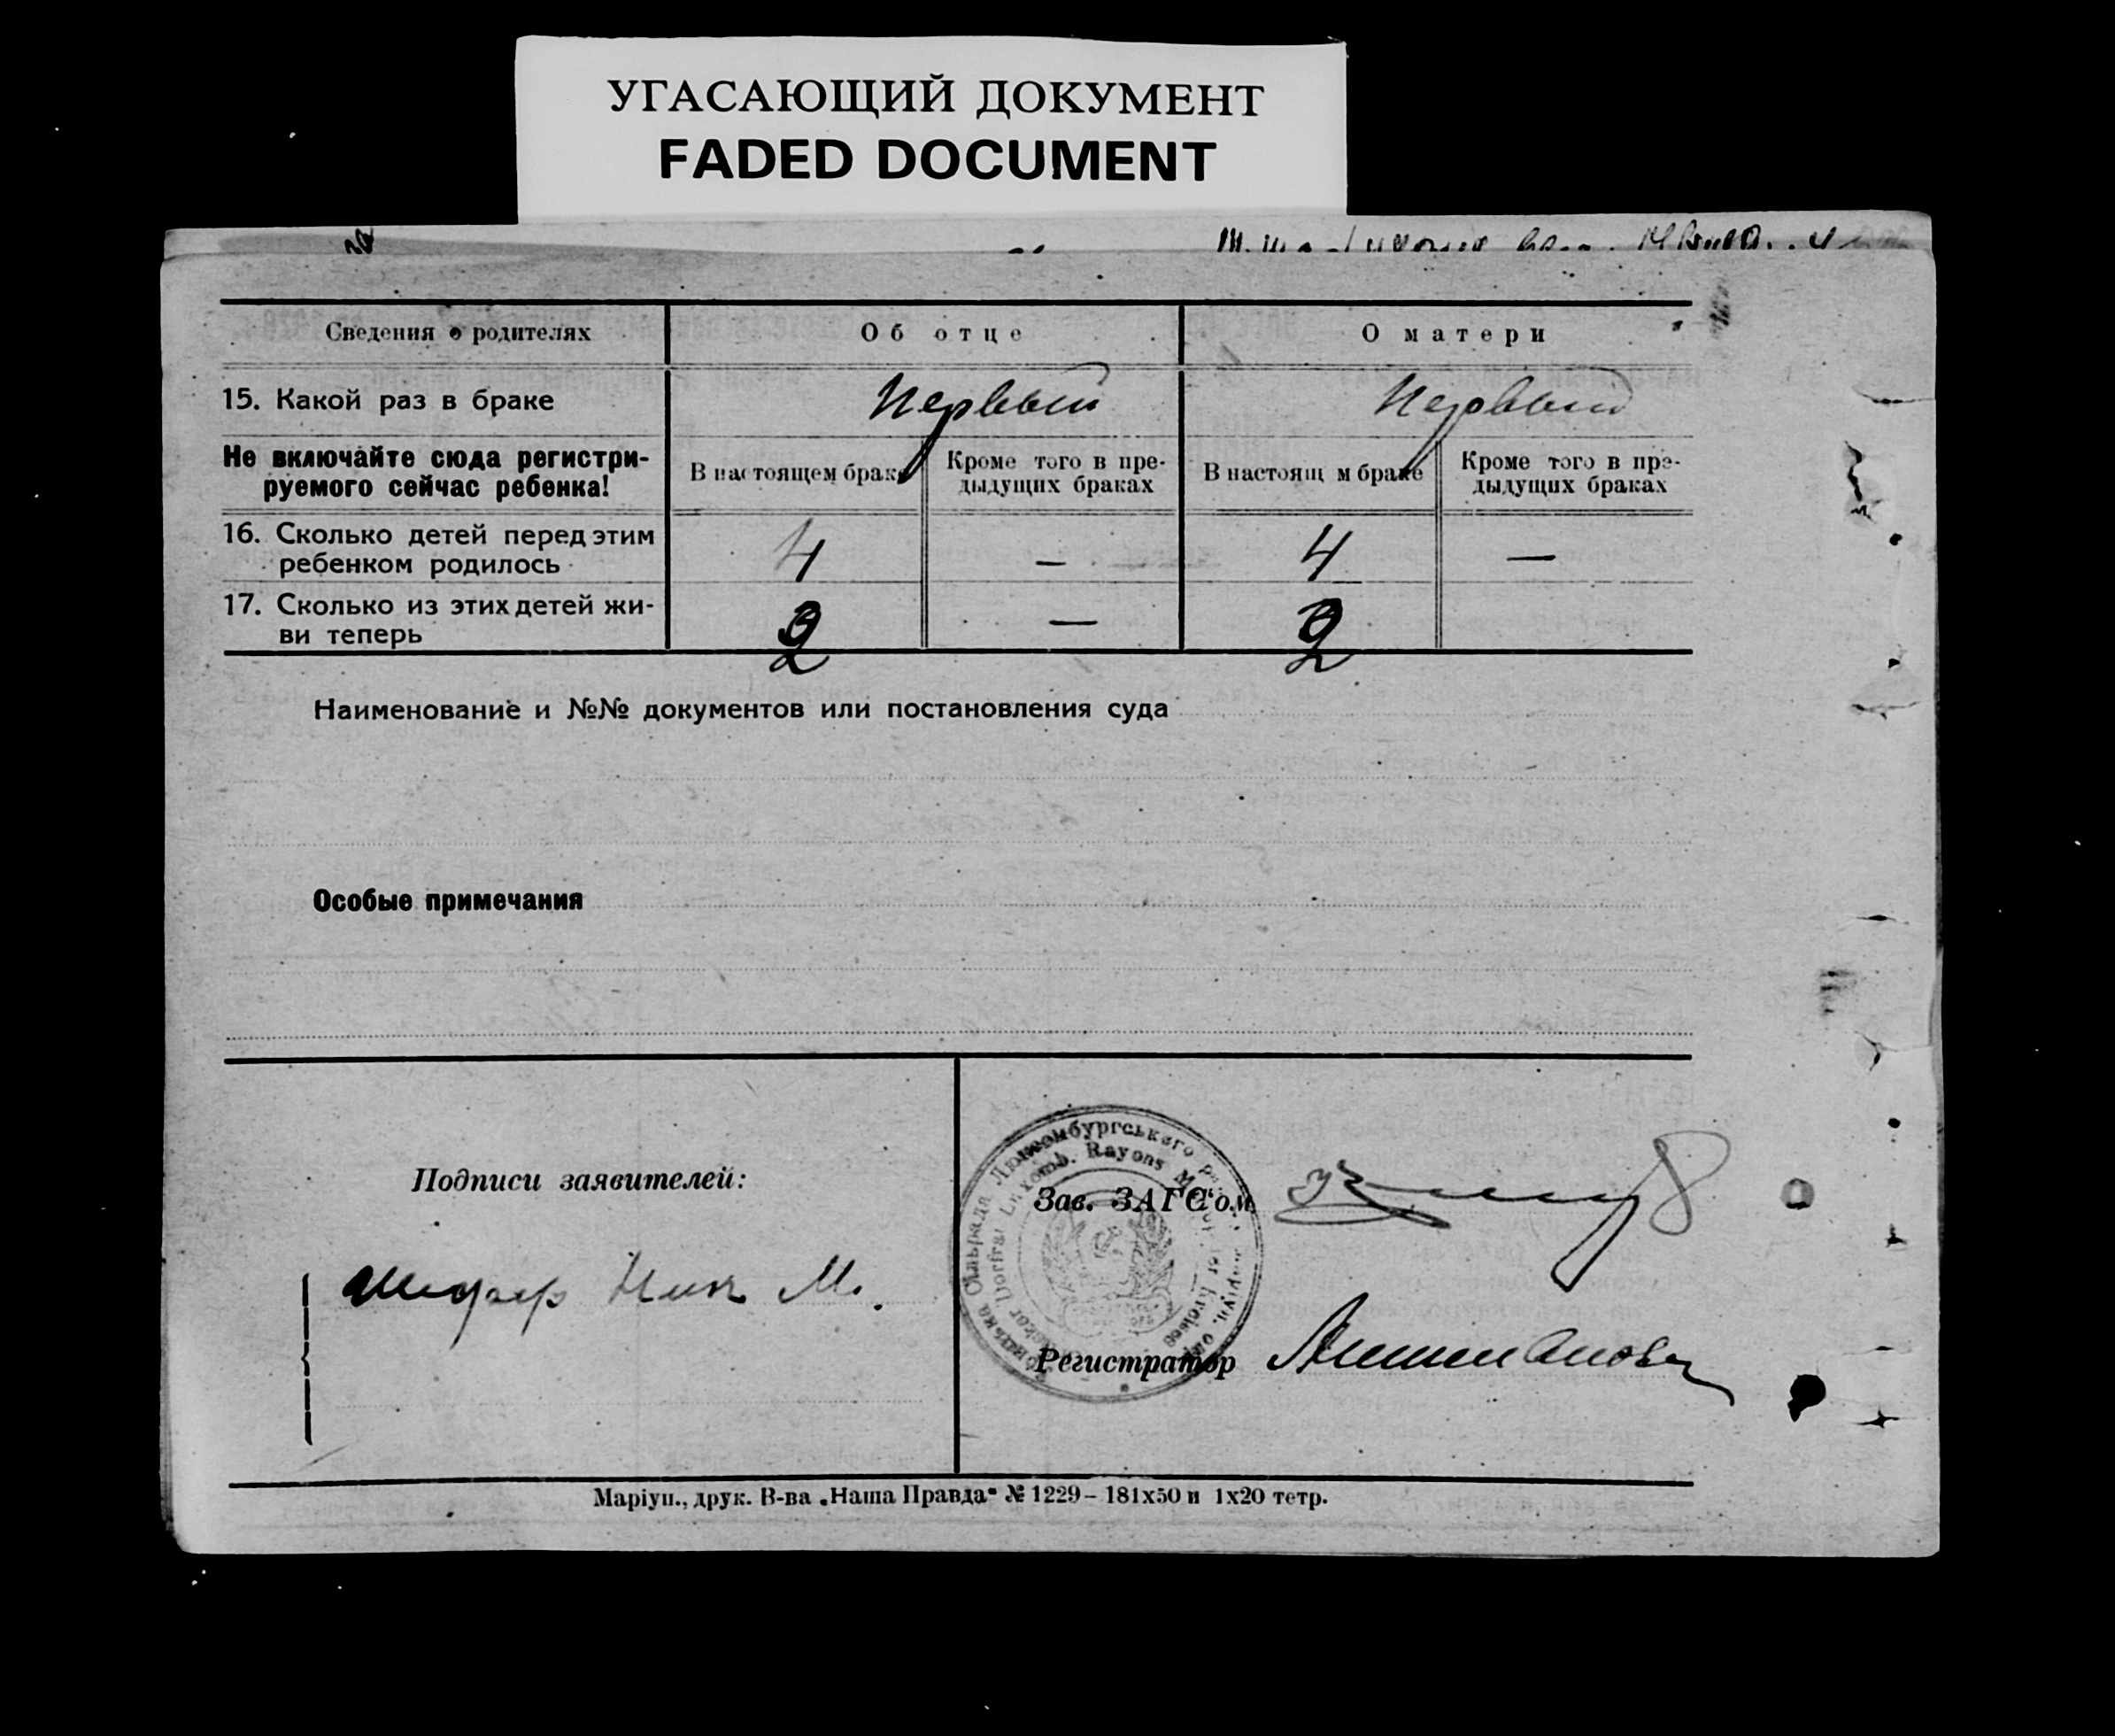 УГАСАЮЩИЙ ДОКУМЕНТ
FADED DOCUMENT
Сведения о родителях
Об отце
О матери
15. Какой раз в браке
Первый
Первый
Не включайте сюда регистри-
руемого сейчас ребенка!
В настоящем браке
Кроме того в пре-
дыдущих браках
В настоящ м браке
Кроме того в пре-
дыдущих браках
16. Сколько детей перед этим
ребенком родилось
4
—
4
—
17. Сколько из этих детей жи-
ви теперь
2
—
2
Наименование и №№ документов или постановления суда
Особые примечания
Подписи заявителей:
Шефер М.
Люксембургського
Luxemb. Rayons
Зав. ЗАГС'ом
Регистратор
Маріуп., друк. В-ва „Наша Правда" № 1229 – 181х50 и 1х20 тетр.